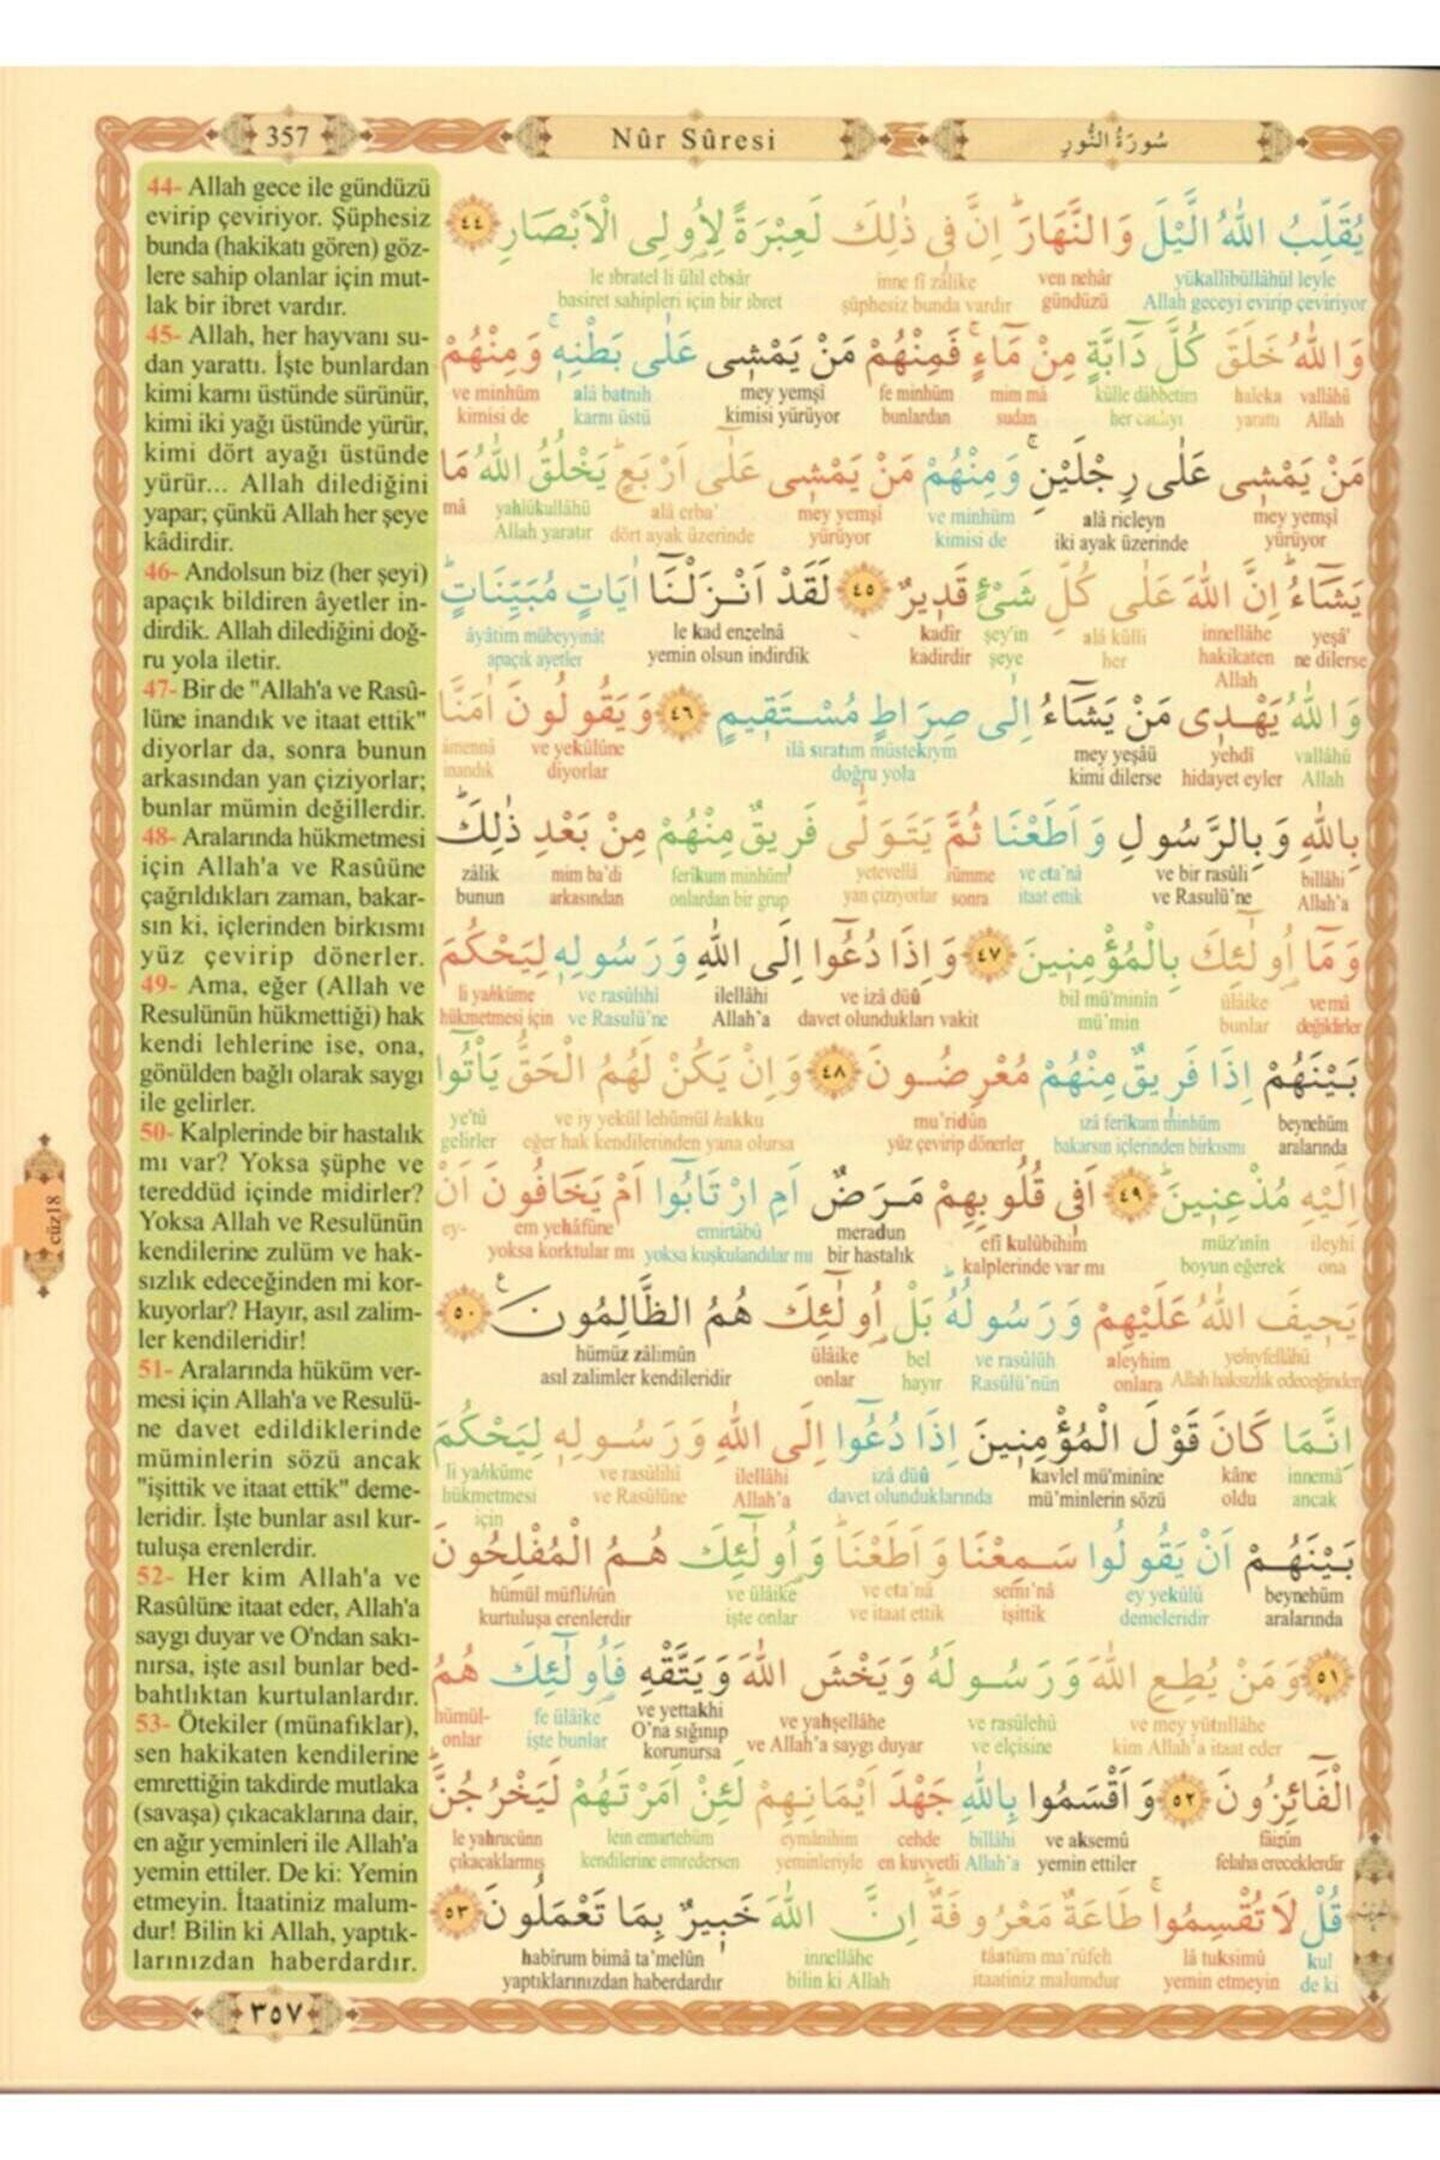 357
Nûr Sûresi
سُورَةُ النُّورِ
44- Allah gece ile gündüzü
evirip çeviriyor. Şüphesiz
bunda (hakikatı gören) göz-
lere sahip olanlar için mut-
lak bir ibret vardır.
45- Allah, her hayvanı su-
dan yarattı. İşte bunlardan
kimi karnı üstünde sürünür,
kimi iki yağı üstünde yürür,
kimi dört ayağı üstünde
yürür... Allah dilediğini
yapar; çünkü Allah her şeye
kâdirdir.
46- Andolsun biz (her şeyi)
apaçık bildiren âyetler in-
dirdik. Allah dilediğini doğ-
ru yola iletir.
47- Bir de "Allah'a ve Rasû-
lüne inandık ve itaat ettik"
diyorlar da, sonra bunun
arkasından yan çiziyorlar;
bunlar mümin değillerdir.
48- Aralarında hükmetmesi
için Allah'a ve Rasûüne
çağrıldıkları zaman, bakar-
sın ki, içlerinden birkısmı
yüz çevirip dönerler.
49- Ama, eğer (Allah ve
Resulünün hükmettiği) hak
kendi lehlerine ise, ona,
gönülden bağlı olarak saygı
ile gelirler.
50- Kalplerinde bir hastalık
mı var? Yoksa şüphe ve
tereddüd içinde midirler?
Yoksa Allah ve Resulünün
kendilerine zulüm ve hak-
sızlık edeceğinden mi kor-
kuyorlar? Hayır, asıl zalim-
ler kendileridir!
51- Aralarında hüküm ver-
mesi için Allah'a ve Resulü-
ne davet edildiklerinde
müminlerin sözü ancak
"işittik ve itaat ettik" deme-
leridir. İşte bunlar asıl kur-
tuluşa erenlerdir.
52- Her kim Allah'a ve
Rasûlüne itaat eder, Allah'a
saygı duyar ve O'ndan sakı-
nırsa, işte asıl bunlar bed-
bahtlıktan kurtulanlardır.
53- Ötekiler (münafıklar),
sen hakikaten kendilerine
emrettiğin takdirde mutlaka
(savaşa) çıkacaklarına dair,
en ağır yeminleri ile Allah'a
yemin ettiler. De ki: Yemin
etmeyin. İtaatiniz malum-
dur! Bilin ki Allah, yaptık-
larınızdan haberdardır.
يُقَلِّبُ اللّٰهُ الَّيْلَ وَالنَّهَارَ اِنَّ ف۪ي ذٰلِكَ لَعِبْرَةً لِاُو۬لِي الْاَبْصَارِ ٤٤
yükallibüllâhül leyle ven nehâr inne fî zâlike le ibratel li ülil ebsâr
Allah geceyi evirip çeviriyor gündüzü şüphesiz bunda vardır basiret sahipleri için bir ibret
وَاللّٰهُ خَلَقَ كُلَّ دَٓابَّةٍ مِنْ مَٓاءٍ فَمِنْهُمْ مَنْ يَمْش۪ي عَلٰى بَطْنِه۪ وَمِنْهُمْ
vallâhü haleka külle dâbbetim mim mâ fe minhüm mey yemşî alâ batnih ve minhüm
Allah yarattı her canlıyı sudan bunlardan kimisi yürüyor karnı üstü kimisi de
مَنْ يَمْش۪ي عَلٰى رِجْلَيْنِ وَمِنْهُمْ مَنْ يَمْش۪ي عَلٰٓى اَرْبَعٍ يَخْلُقُ اللّٰهُ مَا
mey yemşî alâ ricleyn ve minhüm mey yemşî alâ erba' yahlükullâhü mâ
yürüyor iki ayak üzerinde kimisi de yürüyor dört ayak üzerinde Allah yaratır
يَشَٓاءُ اِنَّ اللّٰهَ عَلٰى كُلِّ شَيْءٍ قَد۪يرٌ ٤٥ لَقَدْ اَنْزَلْنَٓا اٰيَاتٍ مُبَيِّنَاتٍ
yeşâ' innellâhe alâ külli şey'in kadîr le kad enzelnâ âyâtim mübeyyinât
ne dilerse hakikaten her şeye kadirdir yemin olsun indirdik apaçık ayetler
Allah
وَاللّٰهُ يَهْد۪ي مَنْ يَشَٓاءُ اِلٰى صِرَاطٍ مُسْتَق۪يمٍ ٤٦ وَيَقُولُونَ اٰمَنَّا
vallâhü yehdî mey yeşâü ilâ sıratım müstekıym ve yekûlüne âmennâ
Allah hidayet eyler kimi dilerse doğru yola diyorlar inandık
بِاللّٰهِ وَبِالرَّسُولِ وَاَطَعْنَا ثُمَّ يَتَوَلّٰى فَر۪يقٌ مِنْهُمْ مِنْ بَعْدِ ذٰلِكَ
billâhi ve bir rasûli ve eta'nâ sümme yetevellâ ferîkum minhüm mim ba'di zâlik
Allah'a ve Rasulü'ne itaat ettik sonra yan çiziyorlar onlardan bir grup arkasından bunun
وَمَٓا اُو۬لٰٓئِكَ بِالْمُؤْمِن۪ينَ ٤٧ وَاِذَا دُعُٓوا اِلَى اللّٰهِ وَرَسُولِه۪ لِيَحْكُمَ
ve mâ ülâike bil mü'minîn ve izâ düû ilellâhi ve rasûlihî li yahküme
değildirler bunlar mü'min davet olundukları vakit Allah'a ve Rasulü'ne hükmetmesi için
بَيْنَهُمْ اِذَا فَر۪يقٌ مِنْهُمْ مُعْرِضُونَ ٤٨ وَاِنْ يَكُنْ لَهُمُ الْحَقُّ يَأْتُٓوا
beynehüm izâ ferîkum minhüm mu'ridûn ve iy yekül lehümül hakku ye'tû
aralarında bakarsın içlerinden birkısmı yüz çevirip dönerler eğer hak kendilerinden yana olursa gelirler
اِلَيْهِ مُذْعِن۪ينَ ٤٩ اَف۪ي قُلُوبِهِمْ مَرَضٌ اَمِ ارْتَابُٓوا اَمْ يَخَافُونَ اَنْ
ileyhi müz'ınîn efî kulûbihim meradun emirtâbû em yehâfüne ey-
ona boyun eğerek kalplerinde var mı bir hastalık yoksa kuşkulandılar mı yoksa korktular mı
يَح۪يفَ اللّٰهُ عَلَيْهِمْ وَرَسُولُهُ بَلْ اُو۬لٰٓئِكَ هُمُ الظَّالِمُونَ ٥٠
yehıyfellâhü aleyhim ve rasûlüh bel ülâike hümüz zâlimûn
Allah haksızlık edeceğinden onlara Rasûlü'nün hayır onlar asıl zalimler kendileridir
اِنَّمَا كَانَ قَوْلَ الْمُؤْمِن۪ينَ اِذَا دُعُٓوا اِلَى اللّٰهِ وَرَسُولِه۪ لِيَحْكُمَ
innemâ kâne kavlel mü'minîne izâ düû ilellâhi ve rasûlihî li yahküme
ancak oldu mü'minlerin sözü davet olunduklarında Allah'a ve Rasûlüne hükmetmesi
için
بَيْنَهُمْ اَنْ يَقُولُوا سَمِعْنَا وَاَطَعْنَا وَاُو۬لٰٓئِكَ هُمُ الْمُفْلِحُونَ
beynehüm ey yekûlû semı'nâ ve eta'nâ ve ülâike hümül müflihûn
aralarında demeleridir işittik ve itaat ettik işte onlar kurtuluşa erenlerdir
٥١ وَمَنْ يُطِعِ اللّٰهَ وَرَسُولَهُ وَيَخْشَ اللّٰهَ وَيَتَّقْهِ فَاُو۬لٰٓئِكَ هُمُ
ve mey yütıllâhe ve rasûlehû ve yahşellâhe ve yettakhi fe ülâike hümül-
kim Allah'a itaat eder ve elçisine ve Allah'a saygı duyar O'na sığınıp korunursa işte bunlar onlar
الْفَٓائِزُونَ ٥٢ وَاَقْسَمُوا بِاللّٰهِ جَهْدَ اَيْمَانِهِمْ لَئِنْ اَمَرْتَهُمْ لَيَخْرُجُنَّ
fâizûn ve aksemû billâhi cehde eymânihim lein emartehüm le yahrucünn
felaha ereceklerdir yemin ettiler Allah'a en kuvvetli yeminleriyle kendilerine emredersen çıkacaklarmış
قُلْ لَا تُقْسِمُوا طَاعَةٌ مَعْرُوفَةٌ اِنَّ اللّٰهَ خَب۪يرٌ بِمَا تَعْمَلُونَ ٥٣
kul lâ tuksimû tâatüm ma'rûfeh innellâhe habîrum bimâ ta'melûn
de ki yemin etmeyin itaatiniz malumdur bilin ki Allah yaptıklarınızdan haberdardır
cüz 18
٣٥٧